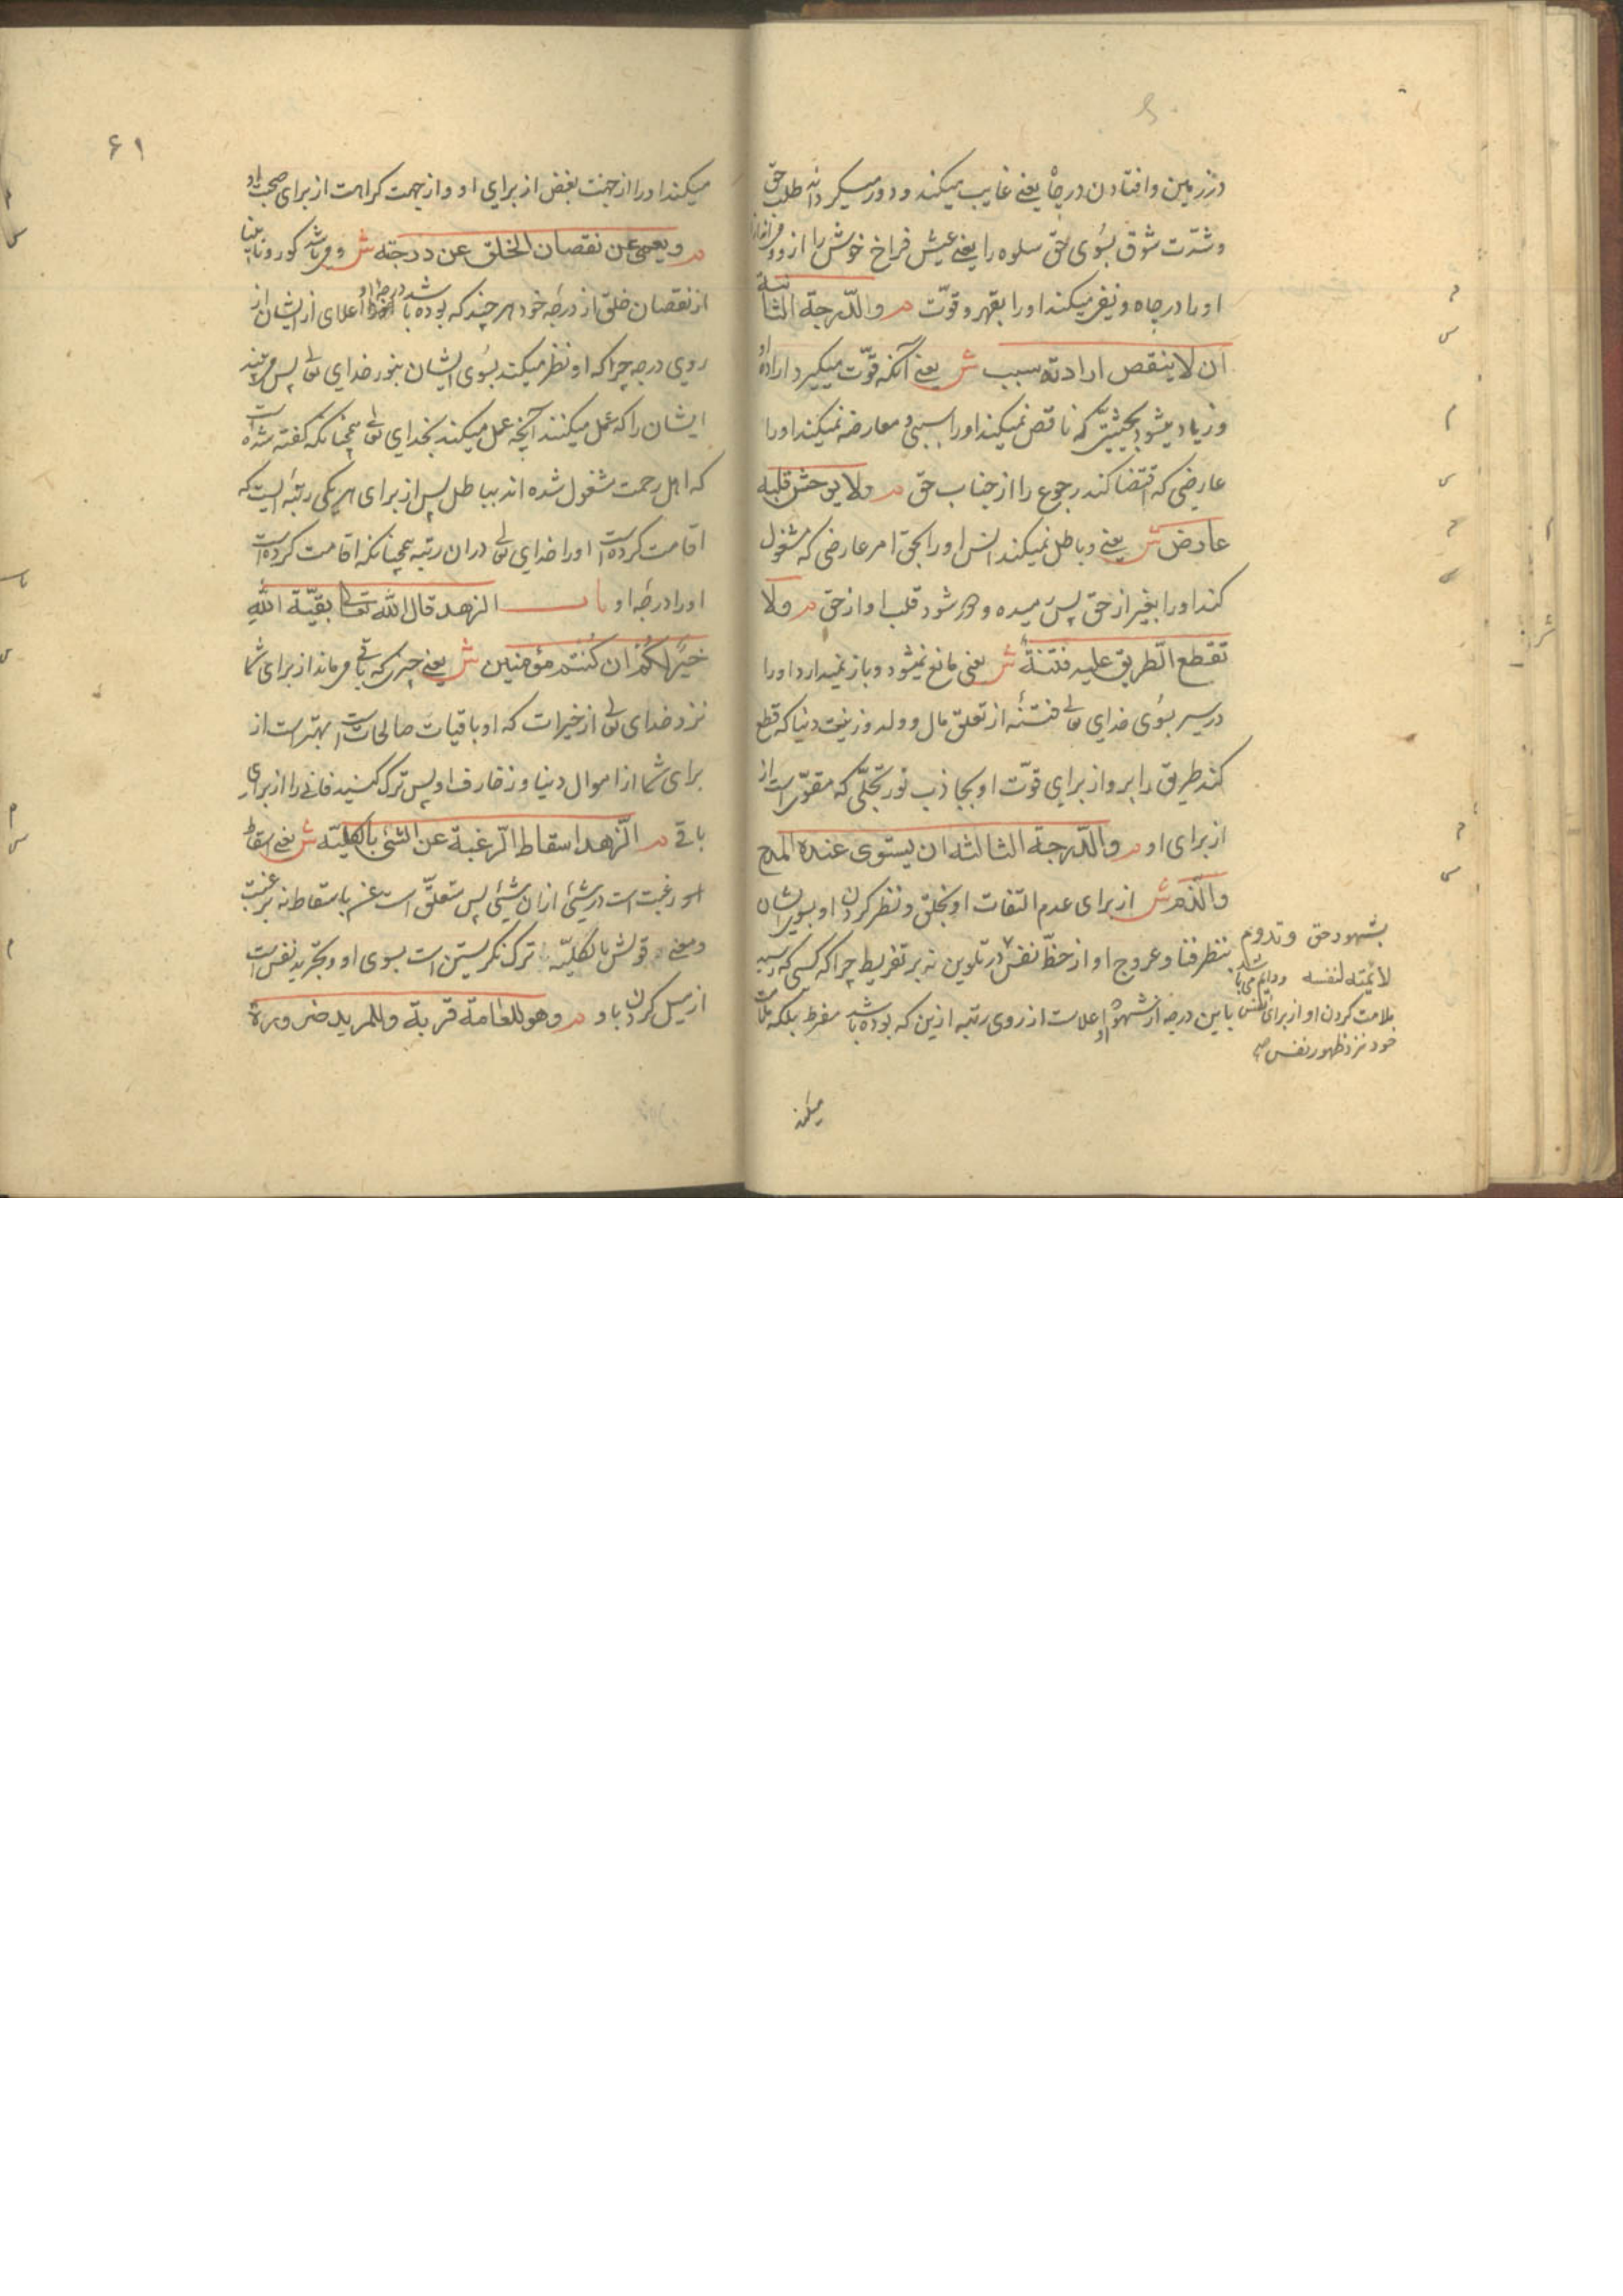 در زمین و افتادن در چاه یعنی غایب میکند و دور میکرداند طلب حق
و شدّت شوق بسُوی حق سلوه را یعنی عیش فراخ خوش را از و
او را در چاه و نیفرمیکند او را بقهر و قوّت م والدّرجة الثانیة
ان لا ینقص ارادته سبب ش یعنی آنکه قوّت میگیرد اراده او
و زیاد میشود بحیثیتی که ناقص نمیکند او را سببی و معارضه نمیکند او را
عارضی که اقتضا کند رجوع را از جناب حق م ولا یوحش قلبه
عارض ش یعنی و باطل نمیکند انس او را بحق امر عارضی که مشغول
کند او را بغیر از حق پس رمیده و دور شود قلب او از حق م ولا
تقطع الطریق علیه فتنة ش یعنی مانع نمیشود و باز نمیدارد او را
در سیر بسُوی خدای تعالی فتنهٔ از تعلق مال و ولد و زینت دنیا که قطع
کند طریق را برو از برای قوّت او بجاذب نور تجلّی که مقوّیست از
از برای او م والدّرجة الثالثه ان یستوی عنده المدح
والذم ش از برای عدم التفات او بخلق و نظر کردن او بسوی ایشان
بنظر فنا و عروج او از حظّ نفس در تلوین نه بر تفریط چرا که کسی که رسید
باین درجه از شهود او علاست از روی رتبه ازین که بوده باشد مفرط بلکه ملامت
بشهود حق و تدوم
لائمته لنفسه و دایم می باشد
ملامت کردن او از برای نفس
خود نزد ظهور نفس صح
میکند
۶۱
میکند او را از جهت بغض از برای او و از جهت کراهت از برای صحبت او
م و یعمی عن نقصان الخلق عن درجته ش و می باشد کور و نابینا
از نقصان خلق از درجه خود هر چند که بوده باشد درجه او اعلای از ایشان از
روی درجه چرا که او نظر میکند بسُوی ایشان بنور خدای تعالی پس می بیند
ایشان را که عمل میکنند آنچه عمل میکند بخدای تعالی همچنانکه گفته شده است
که اهل رحمت مشغول شده اند بباطل پس از برای هر یکی رتبه ایست که
اقامت کرده است او را خدای تعالی در ان رتبه همچنانکه اقامت کرده است
او را درجه او باب الزهد قال الله تعالی بقیّة الله
خیرٌ لکم ان کنتم مؤمنین ش یعنی چیزی که باقی می ماند از برای شما
نزد خدای تعالی از خیرات که او باقیات صالحات است بهتر است از
برای شما از اموال دنیا و زخارف او پس ترک کنید فانی را از برای
باقی م الزّهد اسقاط الرّغبة عن الشئ بالکلیّة ش یعنی اسقاط
رغبت است در شیئ از ان شیئ پس متعلّق است عن باسقاط نه برغبت
و معنی قولش بالکلیّه ترک نگریستن است بسوی او و تجرید نفس است
از میل کردن باو م و هو للعامة قربة وللمرید ضرورة